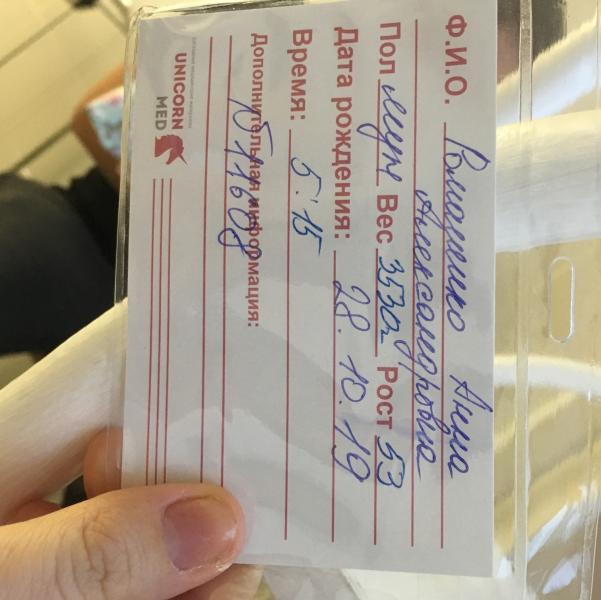 Ф.И.О. Ромашенко Анна
Александровна
Пол муж Вес 3530г Рост 53
Дата рождения: 28.10.19
Время: 5:15
Дополнительная информация:
UNICORN
MED